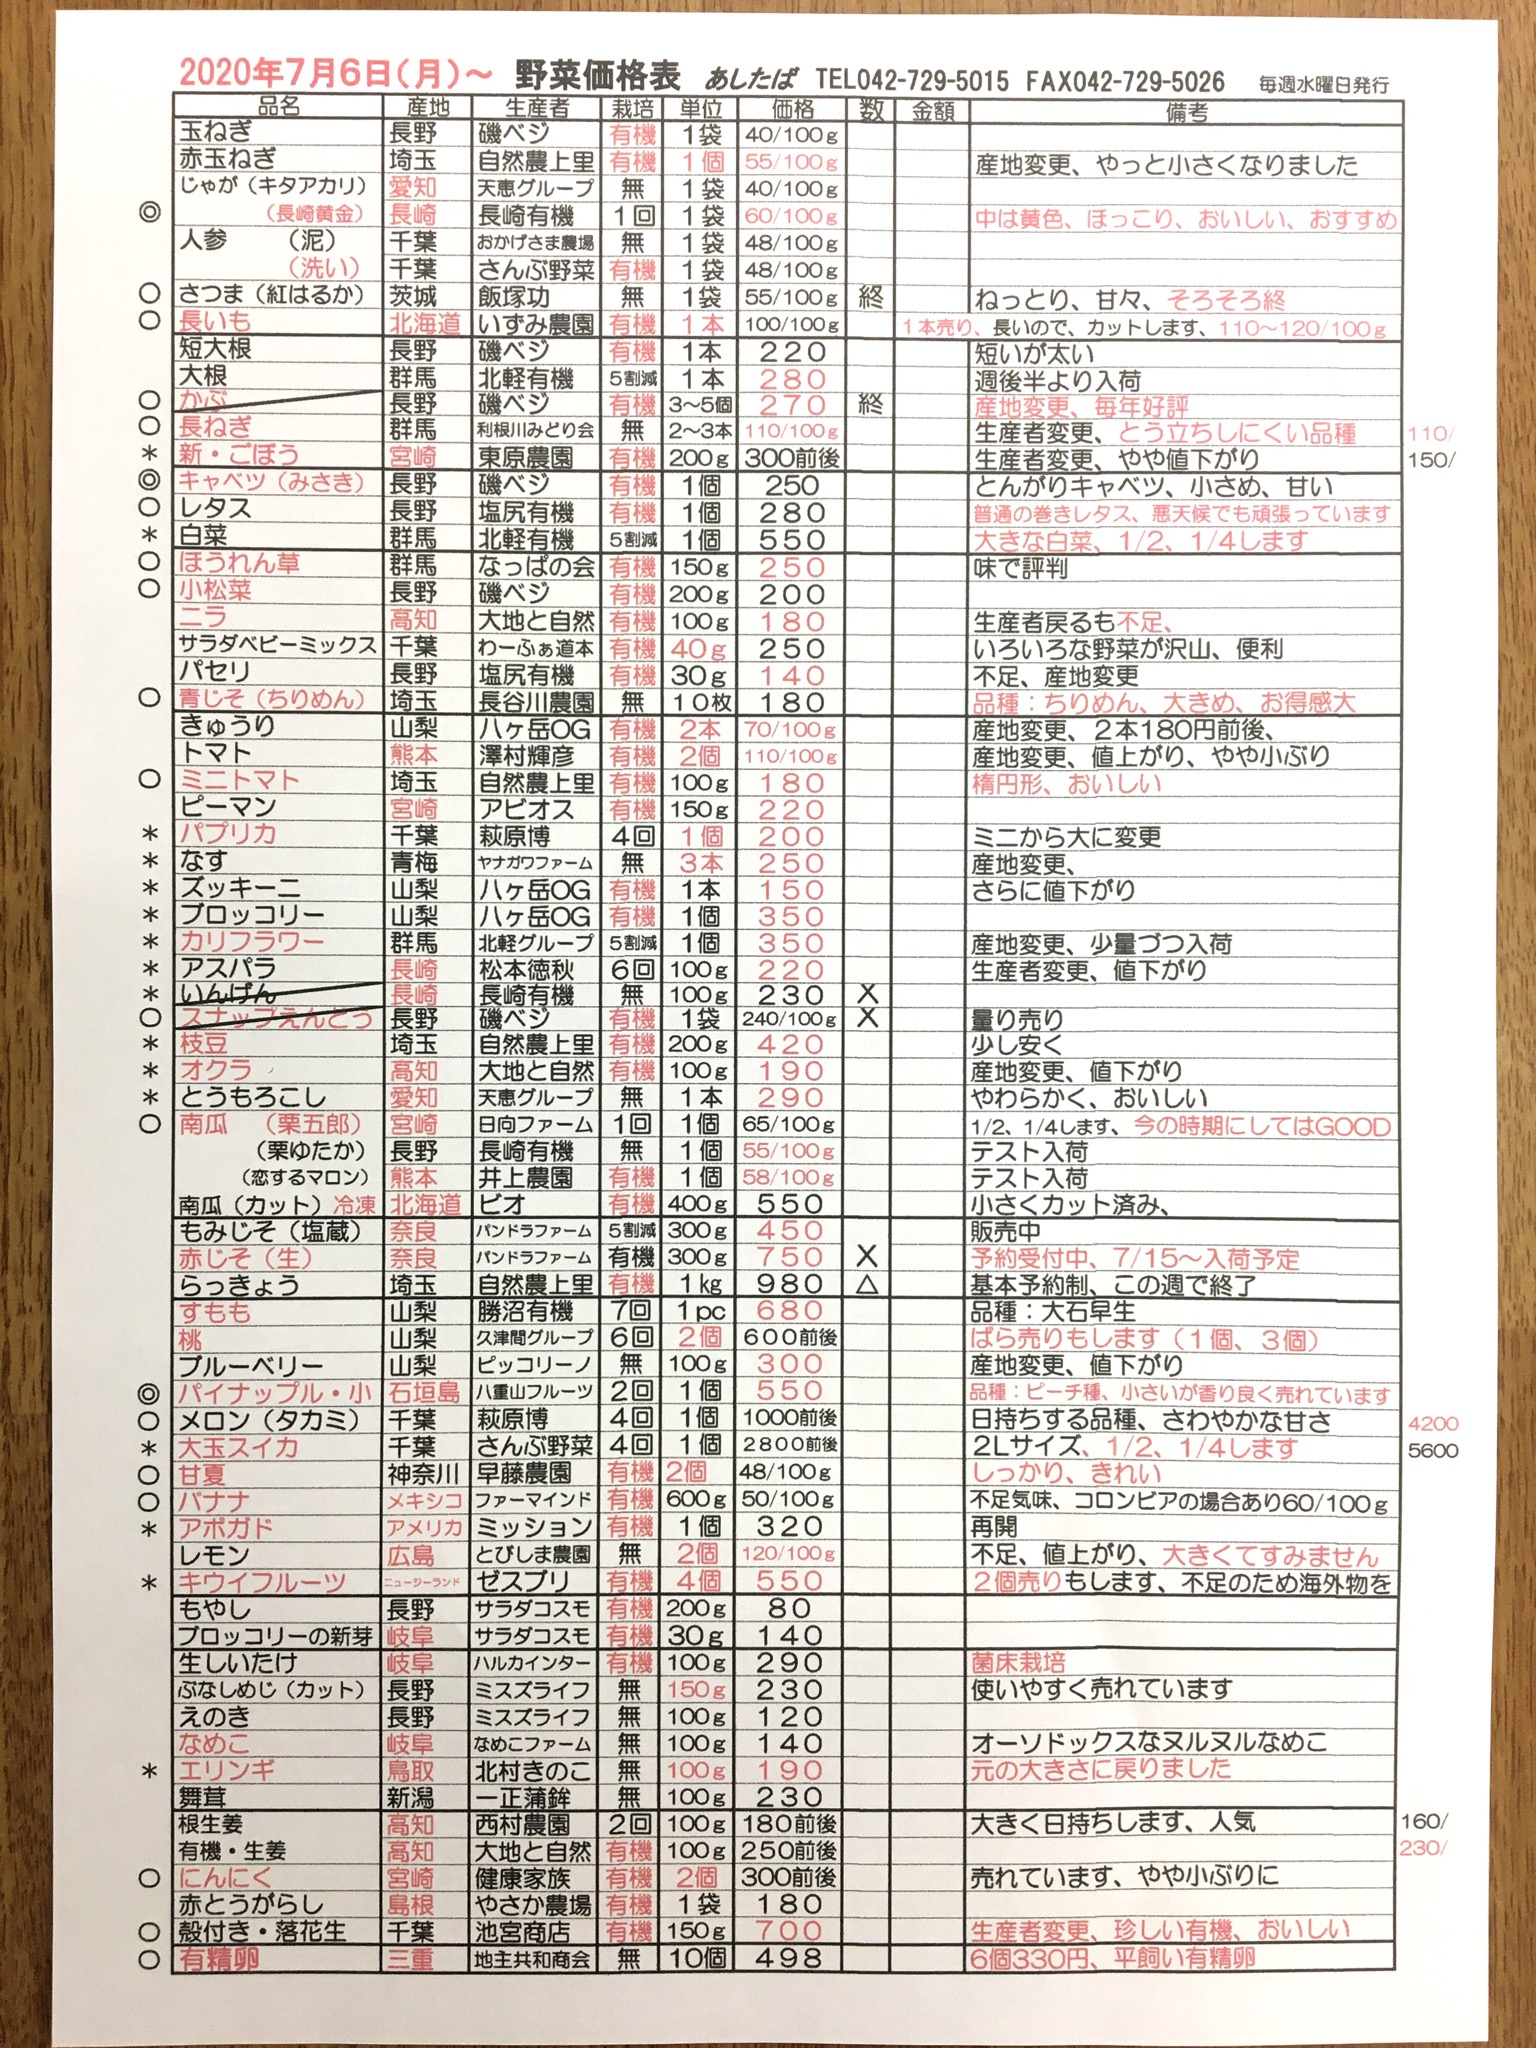 2020年7月6日(月)～ 野菜価格表 あしたば TEL042-729-5015 FAX042-729-5026 毎週水曜日発行
品名 産地 生産者 栽培 単位 価格 数 金額 備考
玉ねぎ 長野 磯ベジ 有機 1袋 40/100g
赤玉ねぎ 埼玉 自然農上里 有機 1個 55/100g 産地変更、やっと小さくなりました
じゃが(キタアカリ) 愛知 天恵グループ 無 1袋 40/100g
◎ (長崎黄金) 長崎 長崎有機 1回 1袋 60/100g 中は黄色、ほっこり、おいしい、おすすめ
人参 (泥) 千葉 おかげさま農場 無 1袋 48/100g
(洗い) 千葉 さんぶ野菜 有機 1袋 48/100g
○ さつま(紅はるか) 茨城 飯塚功 無 1袋 55/100g 終 ねっとり、甘々、そろそろ終
○ 長いも 北海道 いずみ農園 有機 1本 100/100g 1本売り、長いので、カットします、110～120/100g
短大根 長野 磯ベジ 有機 1本 220 短いが太い
大根 群馬 北軽有機 5割減 1本 280 週後半より入荷
○ かぶ 長野 磯ベジ 有機 3～5個 270 終 産地変更、毎年好評
○ 長ねぎ 群馬 利根川みどり会 無 2～3本 110/100g 生産者変更、とう立ちしにくい品種 110/
* 新・ごぼう 宮崎 東原農園 有機 200g 300前後 生産者変更、やや値下がり 150/
◎ キャベツ(みさき) 長野 磯ベジ 有機 1個 250 とんがりキャベツ、小さめ、甘い
○ レタス 長野 塩尻有機 有機 1個 280 普通の巻きレタス、悪天候でも頑張っています
* 白菜 群馬 北軽有機 5割減 1個 550 大きな白菜、1/2、1/4します
○ ほうれん草 群馬 なっぱの会 有機 150g 250 味で評判
○ 小松菜 長野 磯ベジ 有機 200g 200
ニラ 高知 大地と自然 有機 100g 180 生産者戻るも不足、
サラダベビーミックス 千葉 わーふぁ道本 有機 40g 250 いろいろな野菜が沢山、便利
パセリ 長野 塩尻有機 有機 30g 140 不足、産地変更
○ 青じそ(ちりめん) 埼玉 長谷川農園 無 10枚 180 品種：ちりめん、大きめ、お得感大
きゅうり 山梨 八ヶ岳OG 有機 2本 70/100g 産地変更、2本180円前後、
トマト 熊本 澤村輝彦 有機 2個 110/100g 産地変更、値上がり、やや小ぶり
○ ミニトマト 埼玉 自然農上里 有機 100g 180 楕円形、おいしい
ピーマン 宮崎 アビオス 有機 150g 220
* パプリカ 千葉 萩原博 4回 1個 200 ミニから大に変更
* なす 青梅 ヤナガワファーム 無 3本 250 産地変更、
* ズッキーニ 山梨 八ヶ岳OG 有機 1本 150 さらに値下がり
* ブロッコリー 山梨 八ヶ岳OG 有機 1個 350
* カリフラワー 群馬 北軽グループ 5割減 1個 350 産地変更、少量づつ入荷
* アスパラ 長崎 松本徳秋 6回 100g 220 生産者変更、値下がり
* いんげん 長崎 長崎有機 無 100g 230 X
○ スナップえんどう 長野 磯ベジ 有機 1袋 240/100g X 量り売り
* 枝豆 埼玉 自然農上里 有機 200g 420 少し安く
* オクラ 高知 大地と自然 有機 100g 190 産地変更、値下がり
* とうもろこし 愛知 天恵グループ 無 1本 290 やわらかく、おいしい
○ 南瓜 (栗五郎) 宮崎 日向ファーム 1回 1個 65/100g 1/2、1/4します、今の時期にしてはGOOD
(栗ゆたか) 長野 長崎有機 無 1個 55/100g テスト入荷
(恋するマロン) 熊本 井上農園 有機 1個 58/100g テスト入荷
南瓜(カット)冷凍 北海道 ビオ 有機 400g 550 小さくカット済み、
もみじそ(塩蔵) 奈良 パンドラファーム 5割減 300g 450 販売中
赤じそ(生) 奈良 パンドラファーム 有機 300g 750 X 予約受付中、7/15～入荷予定
らっきょう 埼玉 自然農上里 有機 1kg 980 △ 基本予約制、この週で終了
すもも 山梨 勝沼有機 7回 1pc 680 品種：大石早生
桃 山梨 久津間グループ 6回 2個 600前後 ばら売りもします(1個、3個)
ブルーベリー 山梨 ピッコリーノ 無 100g 300 産地変更、値下がり
◎ パイナップル・小 石垣島 八重山フルーツ 2回 1個 550 品種：ピーチ種、小さいが香り良く売れています
○ メロン(タカミ) 千葉 萩原博 4回 1個 1000前後 日持ちする品種、さわやかな甘さ 4200
* 大玉スイカ 千葉 さんぶ野菜 4回 1個 2800前後 2Lサイズ、1/2、1/4します 5600
○ 甘夏 神奈川 早藤農園 有機 2個 48/100g しっかり、きれい
○ バナナ メキシコ ファーマインド 有機 600g 50/100g 不足気味、コロンビアの場合あり60/100g
* アボガド アメリカ ミッション 有機 1個 320 再開
レモン 広島 とびしま農園 無 2個 120/100g 不足、値上がり、大きくてすみません
* キウイフルーツ ニュージーランド ゼスプリ 有機 4個 550 2個売りもします、不足のため海外物を
もやし 長野 サラダコスモ 有機 200g 80
ブロッコリーの新芽 岐阜 サラダコスモ 有機 30g 140
生しいたけ 岐阜 ハルカインター 有機 100g 290 菌床栽培
ぶなしめじ(カット) 長野 ミスズライフ 無 150g 230 使いやすく売れています
えのき 長野 ミスズライフ 無 100g 120
なめこ 岐阜 なめこファーム 無 100g 140 オーソドックスなヌルヌルなめこ
* エリンギ 鳥取 北村きのこ 無 100g 190 元の大きさに戻りました
舞茸 新潟 一正蒲鉾 無 100g 230
根生姜 高知 西村農園 2回 100g 180前後 大きく日持ちします、人気 160/
有機・生姜 高知 大地と自然 有機 100g 250前後 230/
○ にんにく 宮崎 健康家族 有機 2個 300前後 売れています、やや小ぶりに
赤とうがらし 島根 やさか農場 有機 1袋 180
○ 殻付き・落花生 千葉 池宮商店 有機 150g 700 生産者変更、珍しい有機、おいしい
○ 有精卵 三重 地主共和商会 無 10個 498 6個330円、平飼い有精卵